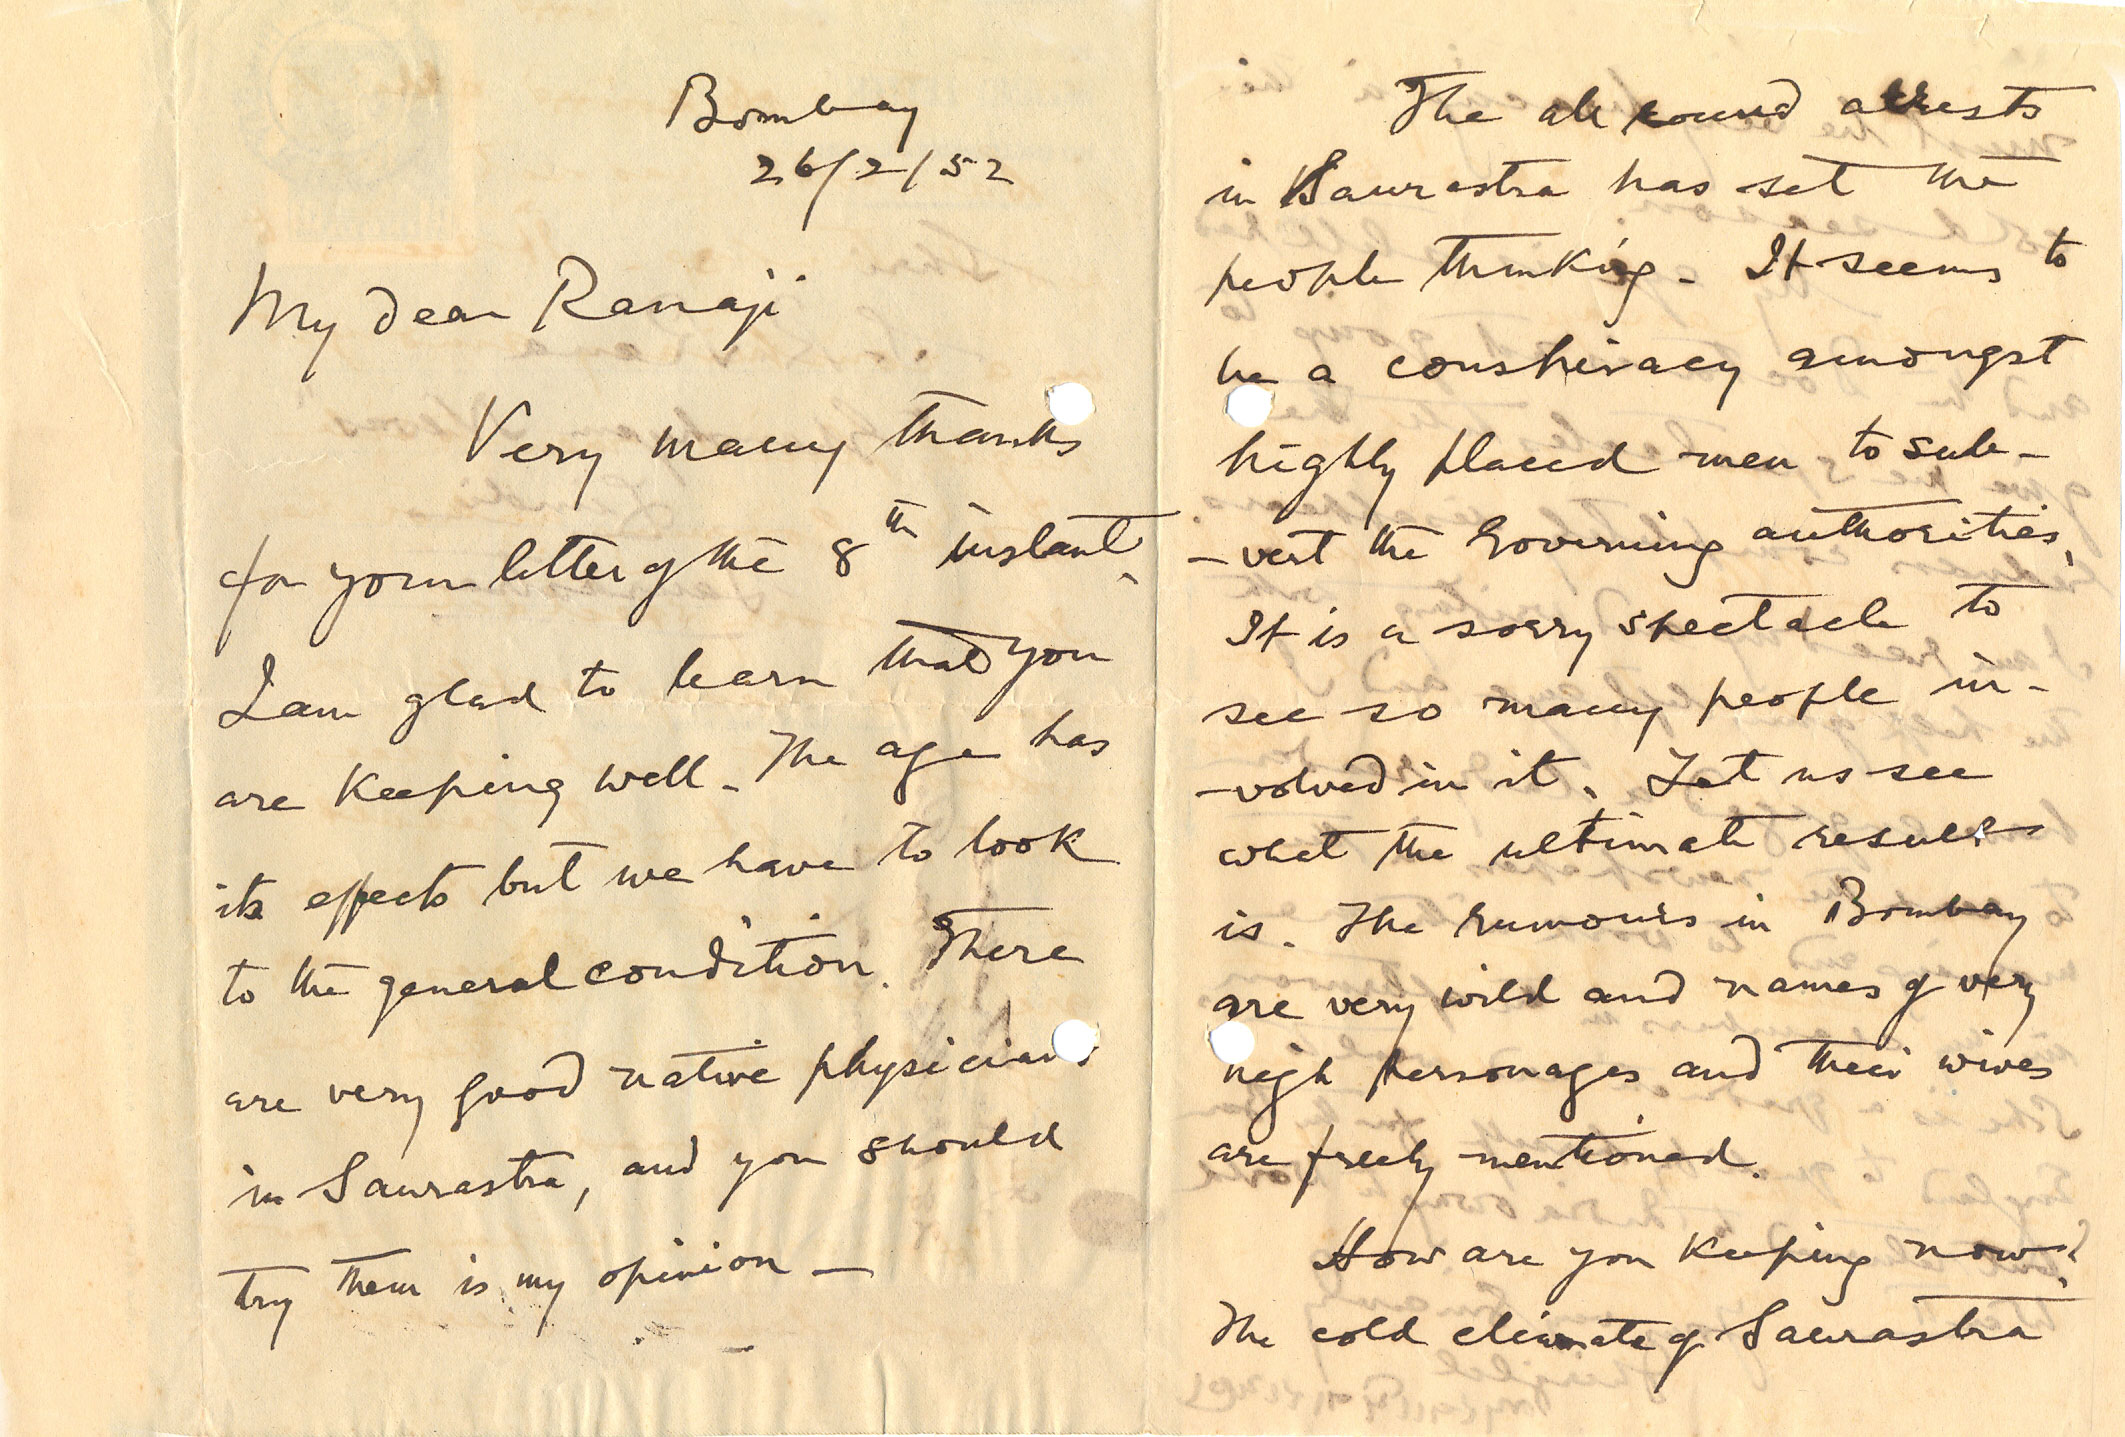 Bombay
26/2/52
My dear Ranaji
Very many thanks
for your letter of the 8th instant.
I am glad to learn that you
are keeping well. The age has
its effects but we have to look
to the general condition. There
are very good native physicians
in Saurastra, and you should
try them is my opinion —
The all round arrests
in Saurastra has set the
people thinking. It seems to
be a conspiracy amongst
highly placed men to sub-
-vert the Governing authorities.
It is a sorry spectacle to
see so many people in-
-volved in it. Let us see
what the ultimate result
is. The rumours in Bombay
are very wild and names of very
high personages and their wives
are freely mentioned.
How are you keeping now?
The cold climate of Saurastra